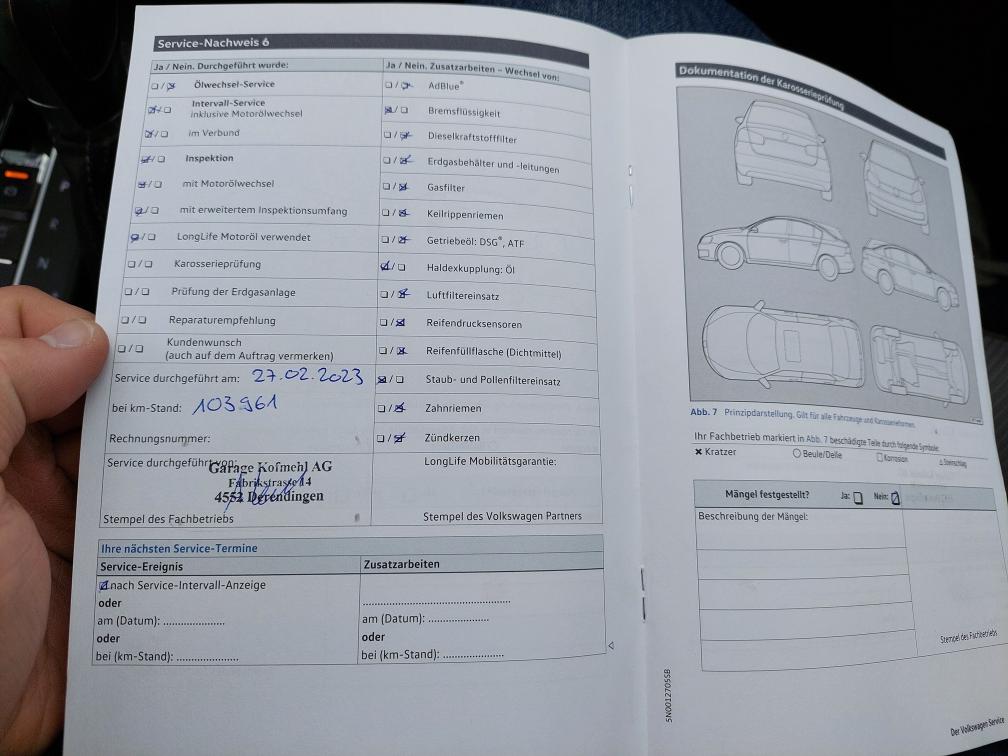 Service-Nachweis 6
Ja / Nein. Durchgeführt wurde:
Ölwechsel-Service
Intervall-Service
inklusive Motorölwechsel
im Verbund
Inspektion
mit Motorölwechsel
mit erweitertem Inspektionsumfang
LongLife Motoröl verwendet
Karosserieprüfung
Prüfung der Erdgasanlage
Reparaturempfehlung
Kundenwunsch
(auch auf dem Auftrag vermerken)
Service durchgeführt am: 27.02.2023
bei km-Stand: 103961
Rechnungsnummer:
Service durchgeführt von:
Garage Kofmehl AG
Fabrikstrasse 14
4552 Derendingen
Stempel des Fachbetriebs
Ja / Nein. Zusatzarbeiten – Wechsel von:
AdBlue®
Bremsflüssigkeit
Dieselkraftstofffilter
Erdgasbehälter und -leitungen
Gasfilter
Keilrippenriemen
Getriebeöl: DSG®, ATF
Haldexkupplung: Öl
Luftfiltereinsatz
Reifendrucksensoren
Reifenfüllflasche (Dichtmittel)
Staub- und Pollenfiltereinsatz
Zahnriemen
Zündkerzen
LongLife Mobilitätsgarantie:
Stempel des Volkswagen Partners
Ihre nächsten Service-Termine
Service-Ereignis
nach Service-Intervall-Anzeige
oder
am (Datum): ......................
oder
bei (km-Stand): ......................
Zusatzarbeiten
......................................................
am (Datum): ......................
oder
bei (km-Stand): ......................
Dokumentation der Karosserieprüfung
Abb. 7 Prinzipdarstellung. Gilt für alle Fahrzeuge und Karosserieformen.
Ihr Fachbetrieb markiert in Abb. 7 beschädigte Teile durch folgende Symbole:
Kratzer
Beule/Delle
Korrosion
Steinschlag
Mängel festgestellt? Ja: Nein:
Beschreibung der Mängel:
Stempel des Fachbetriebs
5N0012705SB
Der Volkswagen Service
P
R
N